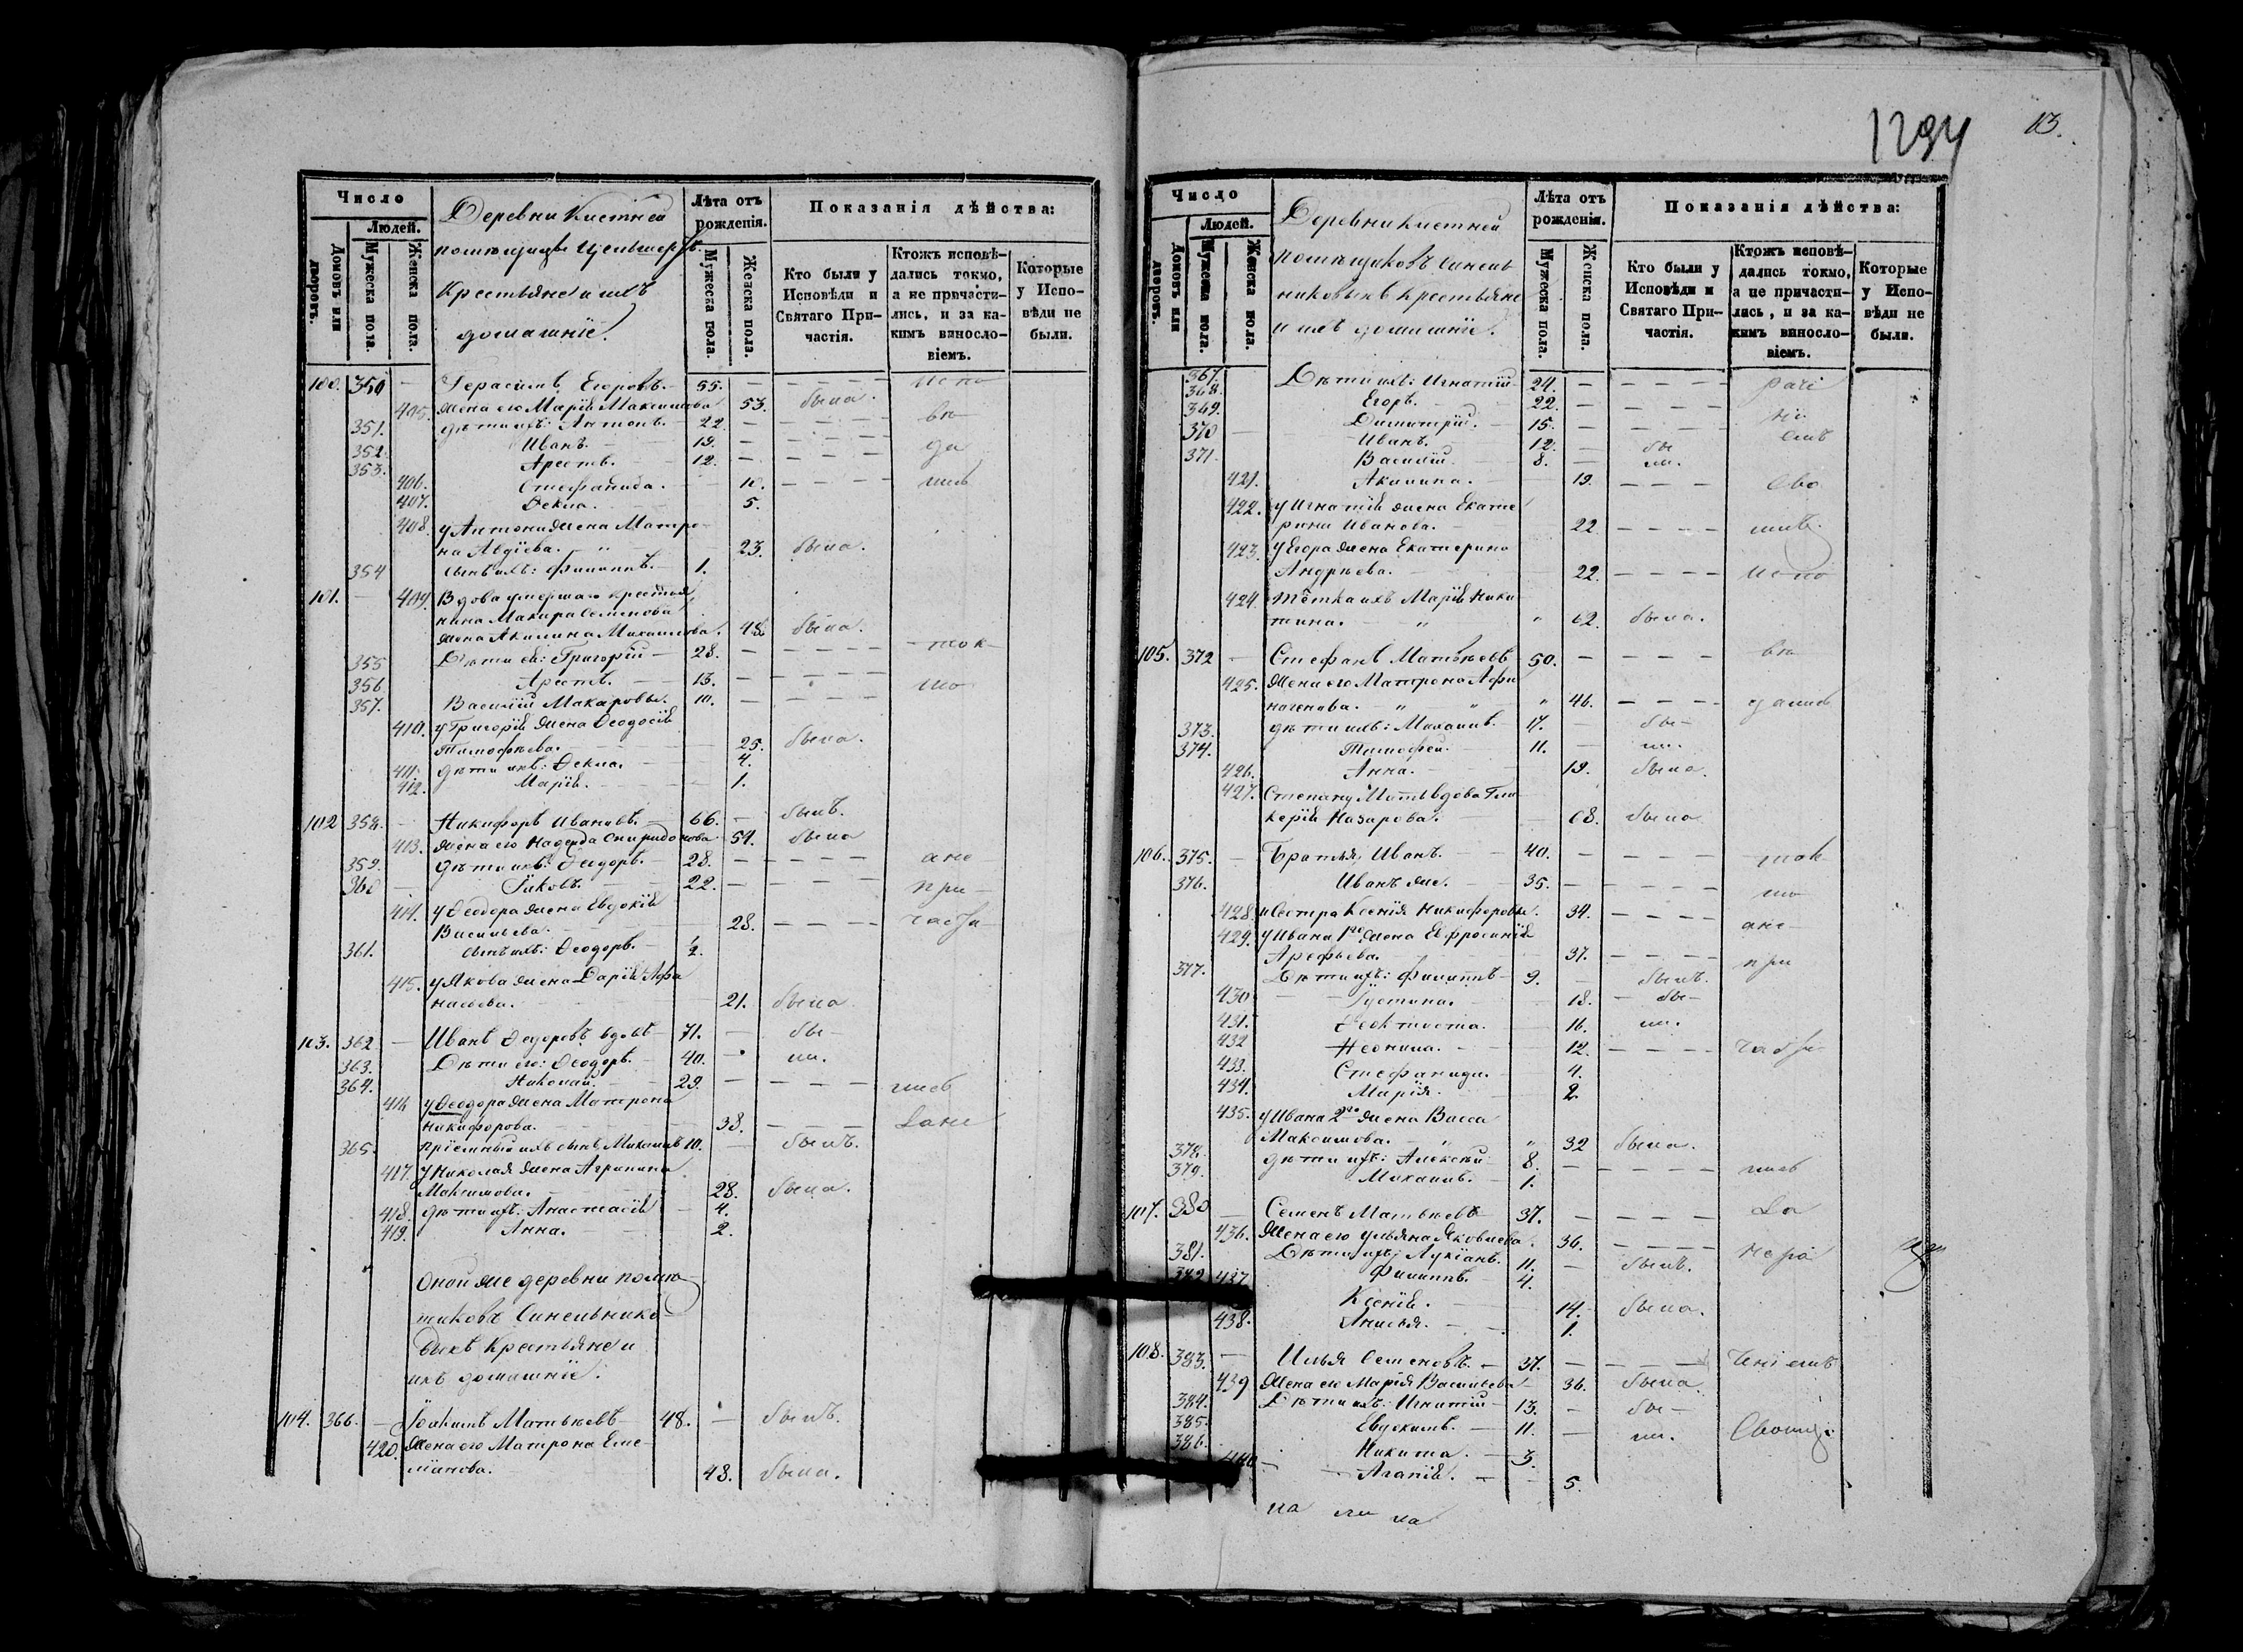 Число
Людей.
Домовъ или дворовъ.
Мужеска пола.
Женска пола.
Деревни Кистней
помѣщицы
Крестьяне и ихъ
домашніе.
Лѣта отъ рожденія.
Мужеска пола.
Женска пола.
Показанія дѣйства:
Кто были у Исповѣди и Святаго Причастія.
Ктожъ исповѣдались токмо, а не причастились, и за какимъ винословіемъ.
Которые у Исповѣди не были.
100. 350 — Герасимъ Егоровъ. 55. — испо
405. жена его Марія Максимова 53. была.
351. дѣти ихъ: Антонъ. 22. — вѣ
352. Иванъ. 19. — да
353. Арестъ. 12. —
406. Стефанида. 10. лись
407. Ѳекла. 5.
408. у Антона жена Матро-
на Авдіева. 23. была.
354 сынъ ихъ: Филиппъ. 1.
101. — 409. Вдова умершаго крестья
нина Макара Семенова
жена Акилина Михаилова. 48. была.
355 Дѣти ея: Григорій — 28. — ток-
356 Арестъ. 13. — мо
357. Василій Макаровы. 10. —
410. у Григорія жена Ѳеодосія
Тимофѣева. 25. была.
411. дѣти ихъ: Ѳекла. 4.
412. Марія. 1.
102 358. — Никифоръ Ивановъ. 66. — былъ.
413. жена его Надежда Спиридонова 59. была
359. дѣти ихъ: Ѳеодоръ. 28. — ане
360 — Іаковъ. 22. — при-
414. у Ѳеодора жена Евдокія
Васильева. 28. части
361. сынъ ихъ: Ѳеодоръ. ½.
415. у Якова жена Дарія Афа
насьева. 21. была
103. 362. — Иванъ Ѳедоровъ вдовъ 71. — бы-
363. Дѣти его: Ѳеодоръ. 40. ли.
364. Николай. 29. — лись
416 у Ѳеодора жена Матрона
Никифорова. 38.
365. пріемный ихъ сынъ Михаилъ 10. — былъ.
417. у Николая жена Агрипина
Максимова. 28. была.
418. дѣти ихъ: Анастасія — 4.
419. Анна. 2.
Оной же деревни помѣ
щиковъ Синельнико-
выхъ Крестьяне и
ихъ домашніе.
104. 366. — Іоакимъ Матвѣевъ 48. — былъ.
420. Жена его Матрона Еме-
лianова. 43. была.
1294
113.
Число
Людей.
Домовъ или дворовъ.
Мужеска пола.
Женска пола.
Деревни Кистней
помѣщиковъ Синель
никовыхъ Крестьяне
и ихъ домашніе.
Лѣта отъ рожденія.
Мужеска пола.
Женска пола.
Показанія дѣйства:
Кто были у Исповѣди и Святаго Причастія.
Ктожъ исповѣдались токмо, а не причастились, и за какимъ винословіемъ.
Которые у Исповѣди не были.
367. Дѣти ихъ: Игнатій 24. —
368. Егоръ. 22. —
369. Димитрій. 15. —
370 — Иванъ. 12. — бы
371. Василій. 8. — ли.
421. Акилина. 19. сво
422. у Игнатія жена Екате
рина Иванова. 22
423. у Егора жена Екатерина
Андрѣева. 22. испо
424. Тётка ихъ Марія Ники
тина. 62. была.
105. 372 — Стефанъ Матвѣевъ 50. — вѣ
425. жена его Матрона Афи
ногенова. 46. дались
373. дѣти ихъ: Михаилъ 17. — бы-
374. Тимофей. 11. — ли.
426. Анна. 19. была.
427. Степану Матв. вдова Гли
керія Назарова. 68. была
106. 375. — Братья, Иванъ. 40. — ток
376. Иванъ же. 35. — мо
428. и Сестра Ксенія Никифоровы. 34. ане-
429. у Ивана 1го жена Ефросинія
Арефьева. 37. при
377. Дѣти ихъ: Филиппъ 9. былъ.
430 Іустина. 18. — бы-
431. Ѳеоктиста. 16. ли.
432 Неонила. 12. части
433. Стефанида. 4.
434. Марія. 2
435. у Ивана 2го жена Васса
Максимова. 32 была.
378. дѣти ихъ: Алексѣй 8. — лись
379. Михаилъ. 1.
107. 380 — Семенъ Матвѣевъ 37. —
436. Жена его Ульяна Яковлева. 36. нера
381. Дѣти ихъ: Лукіанъ. 11. — былъ.
382 437 Филиппъ. 4.
Ксенія. 14. была.
438. Анисья. 1.
108. 383. — Илья Семеновъ. 37. —
439 Жена его Марія Васильева 36. была.
384. Дѣти ихъ: Игнатій 13. — бы-
385. Евдокимъ. 11. — ли.
386. Никита. 3.
440 Агапія. 5.